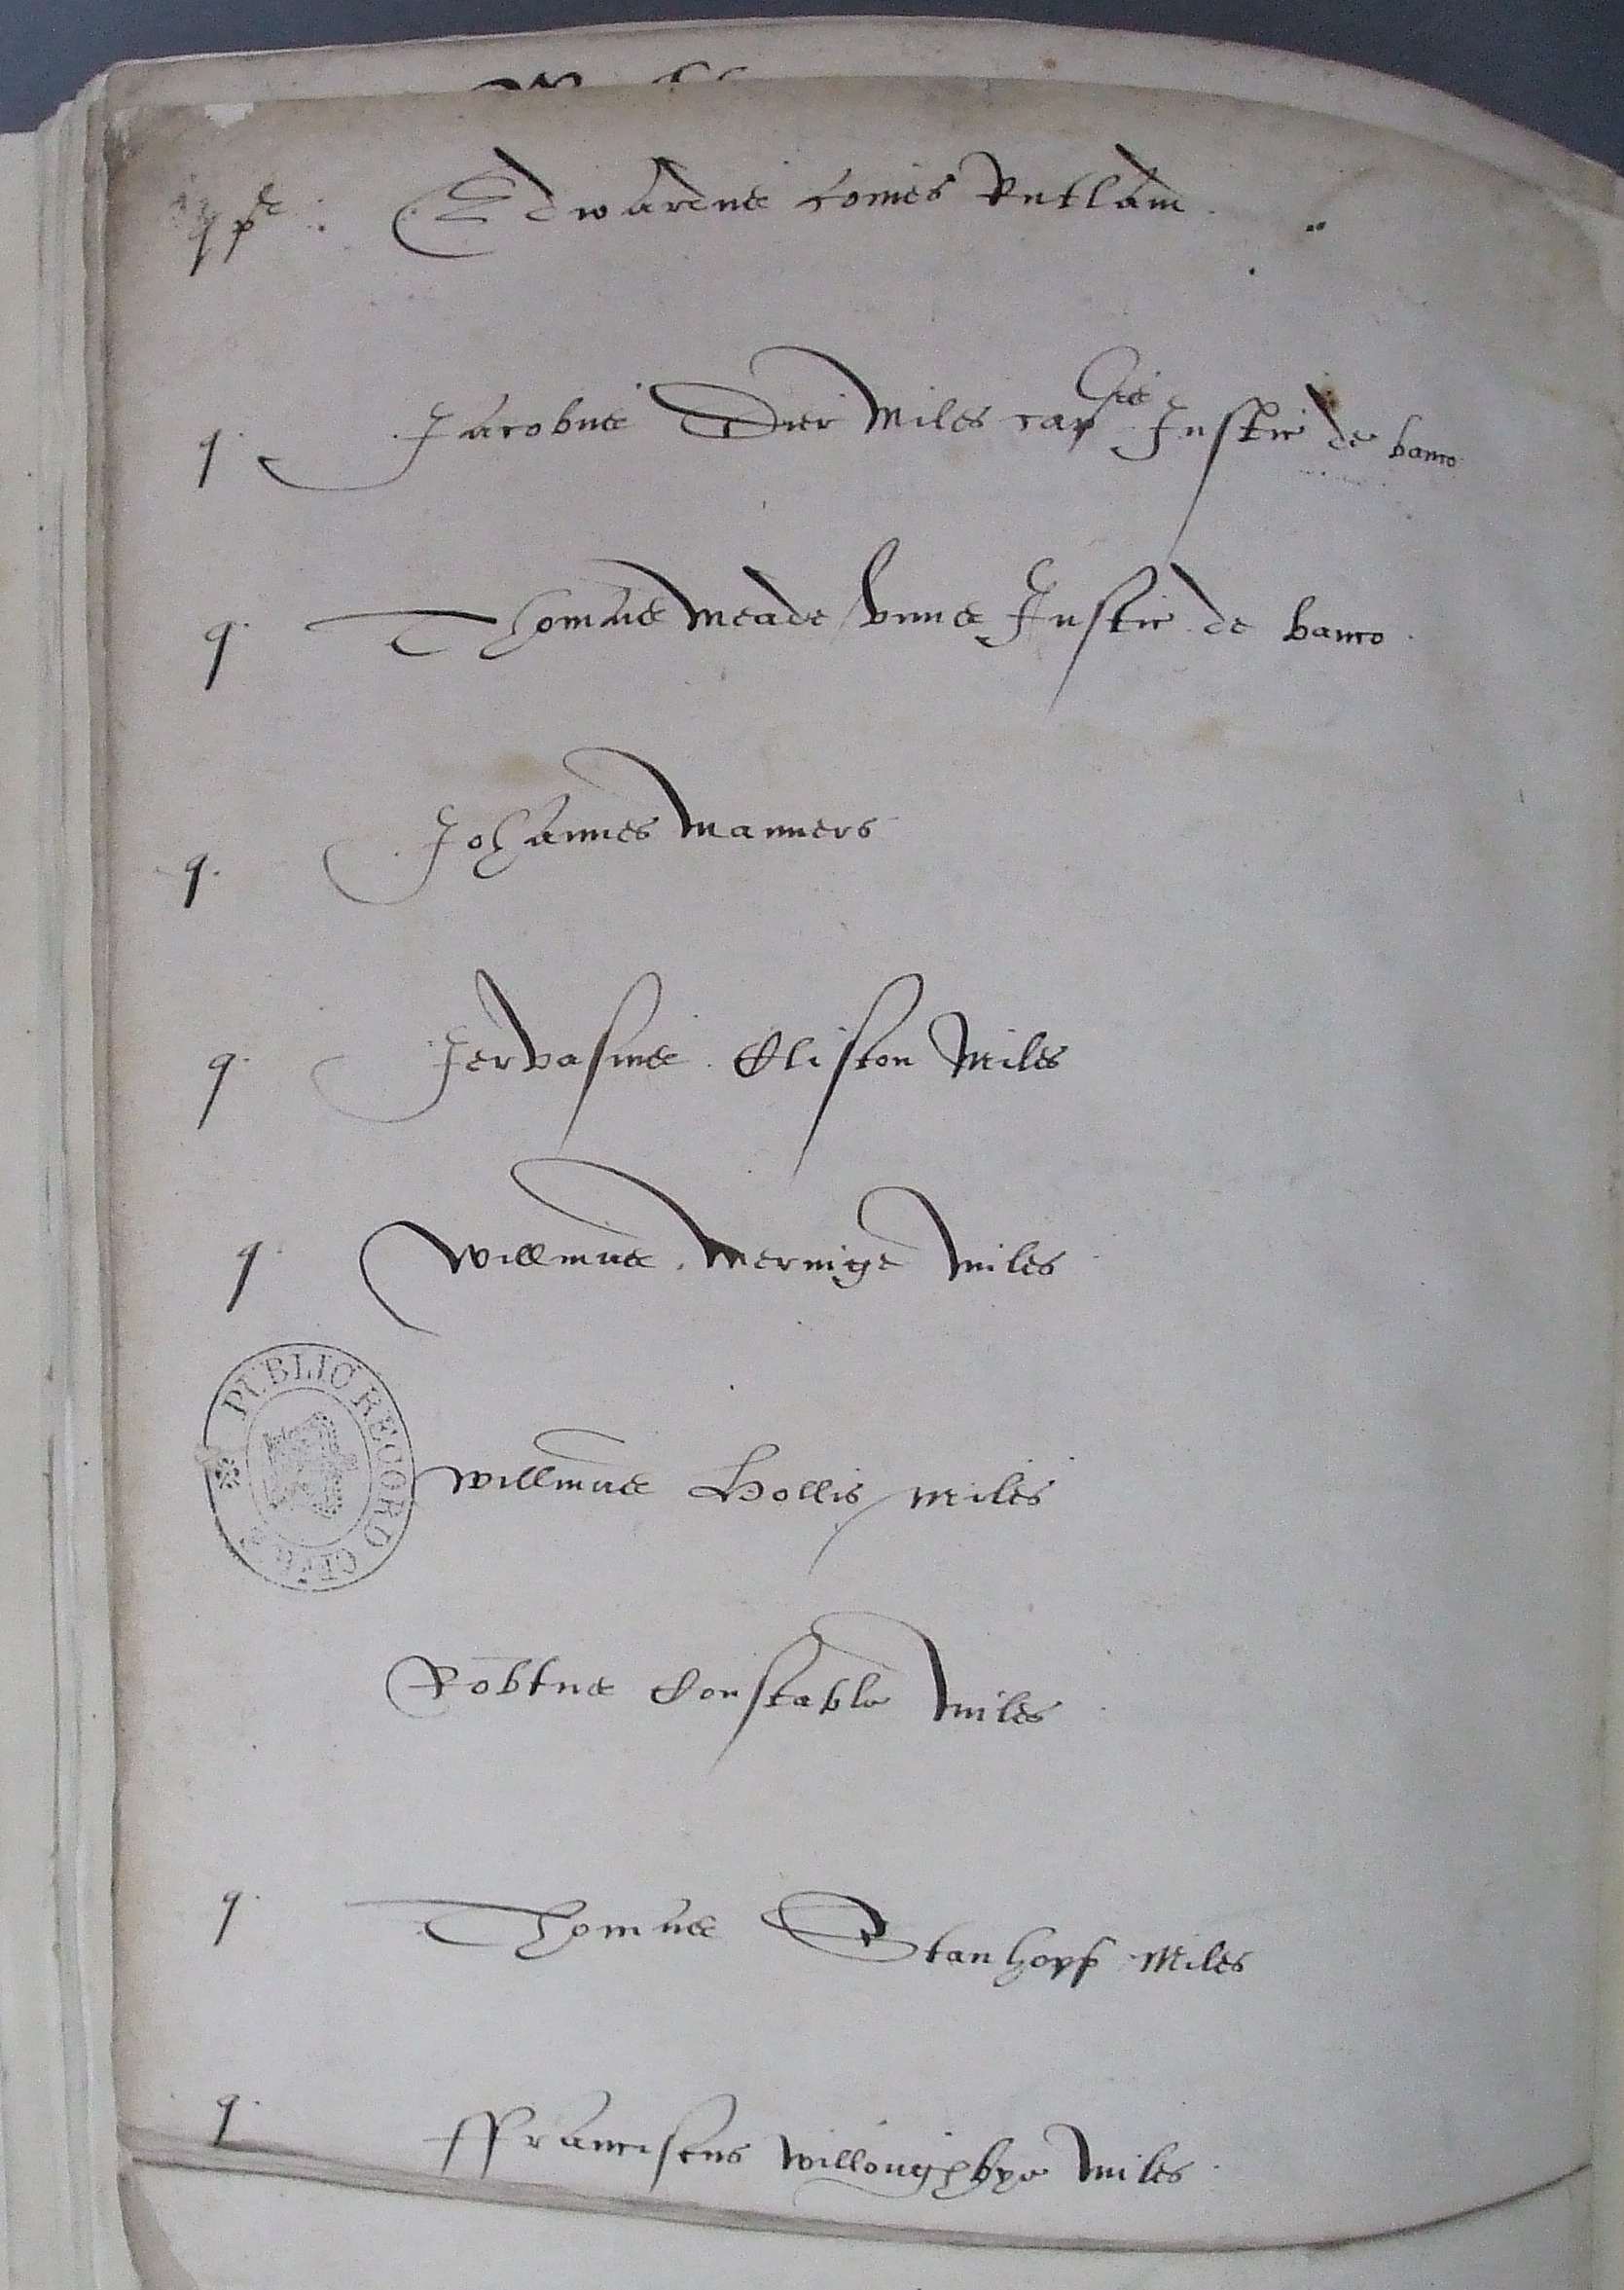 Edwardus comes Rutland
q Jacobus Dier Miles cap Justic de banco
q Thomas Meade vnus Justic de banco
q Johannes Manners
q Jervasius Clifton Miles
q Willmus Merringe Miles
PUBLIC RECORD OFFICE
Willmus Hollis Miles
Robtus Constable Miles
q Thomas Stanhope Miles
q ffranciscus Willoughbye Miles